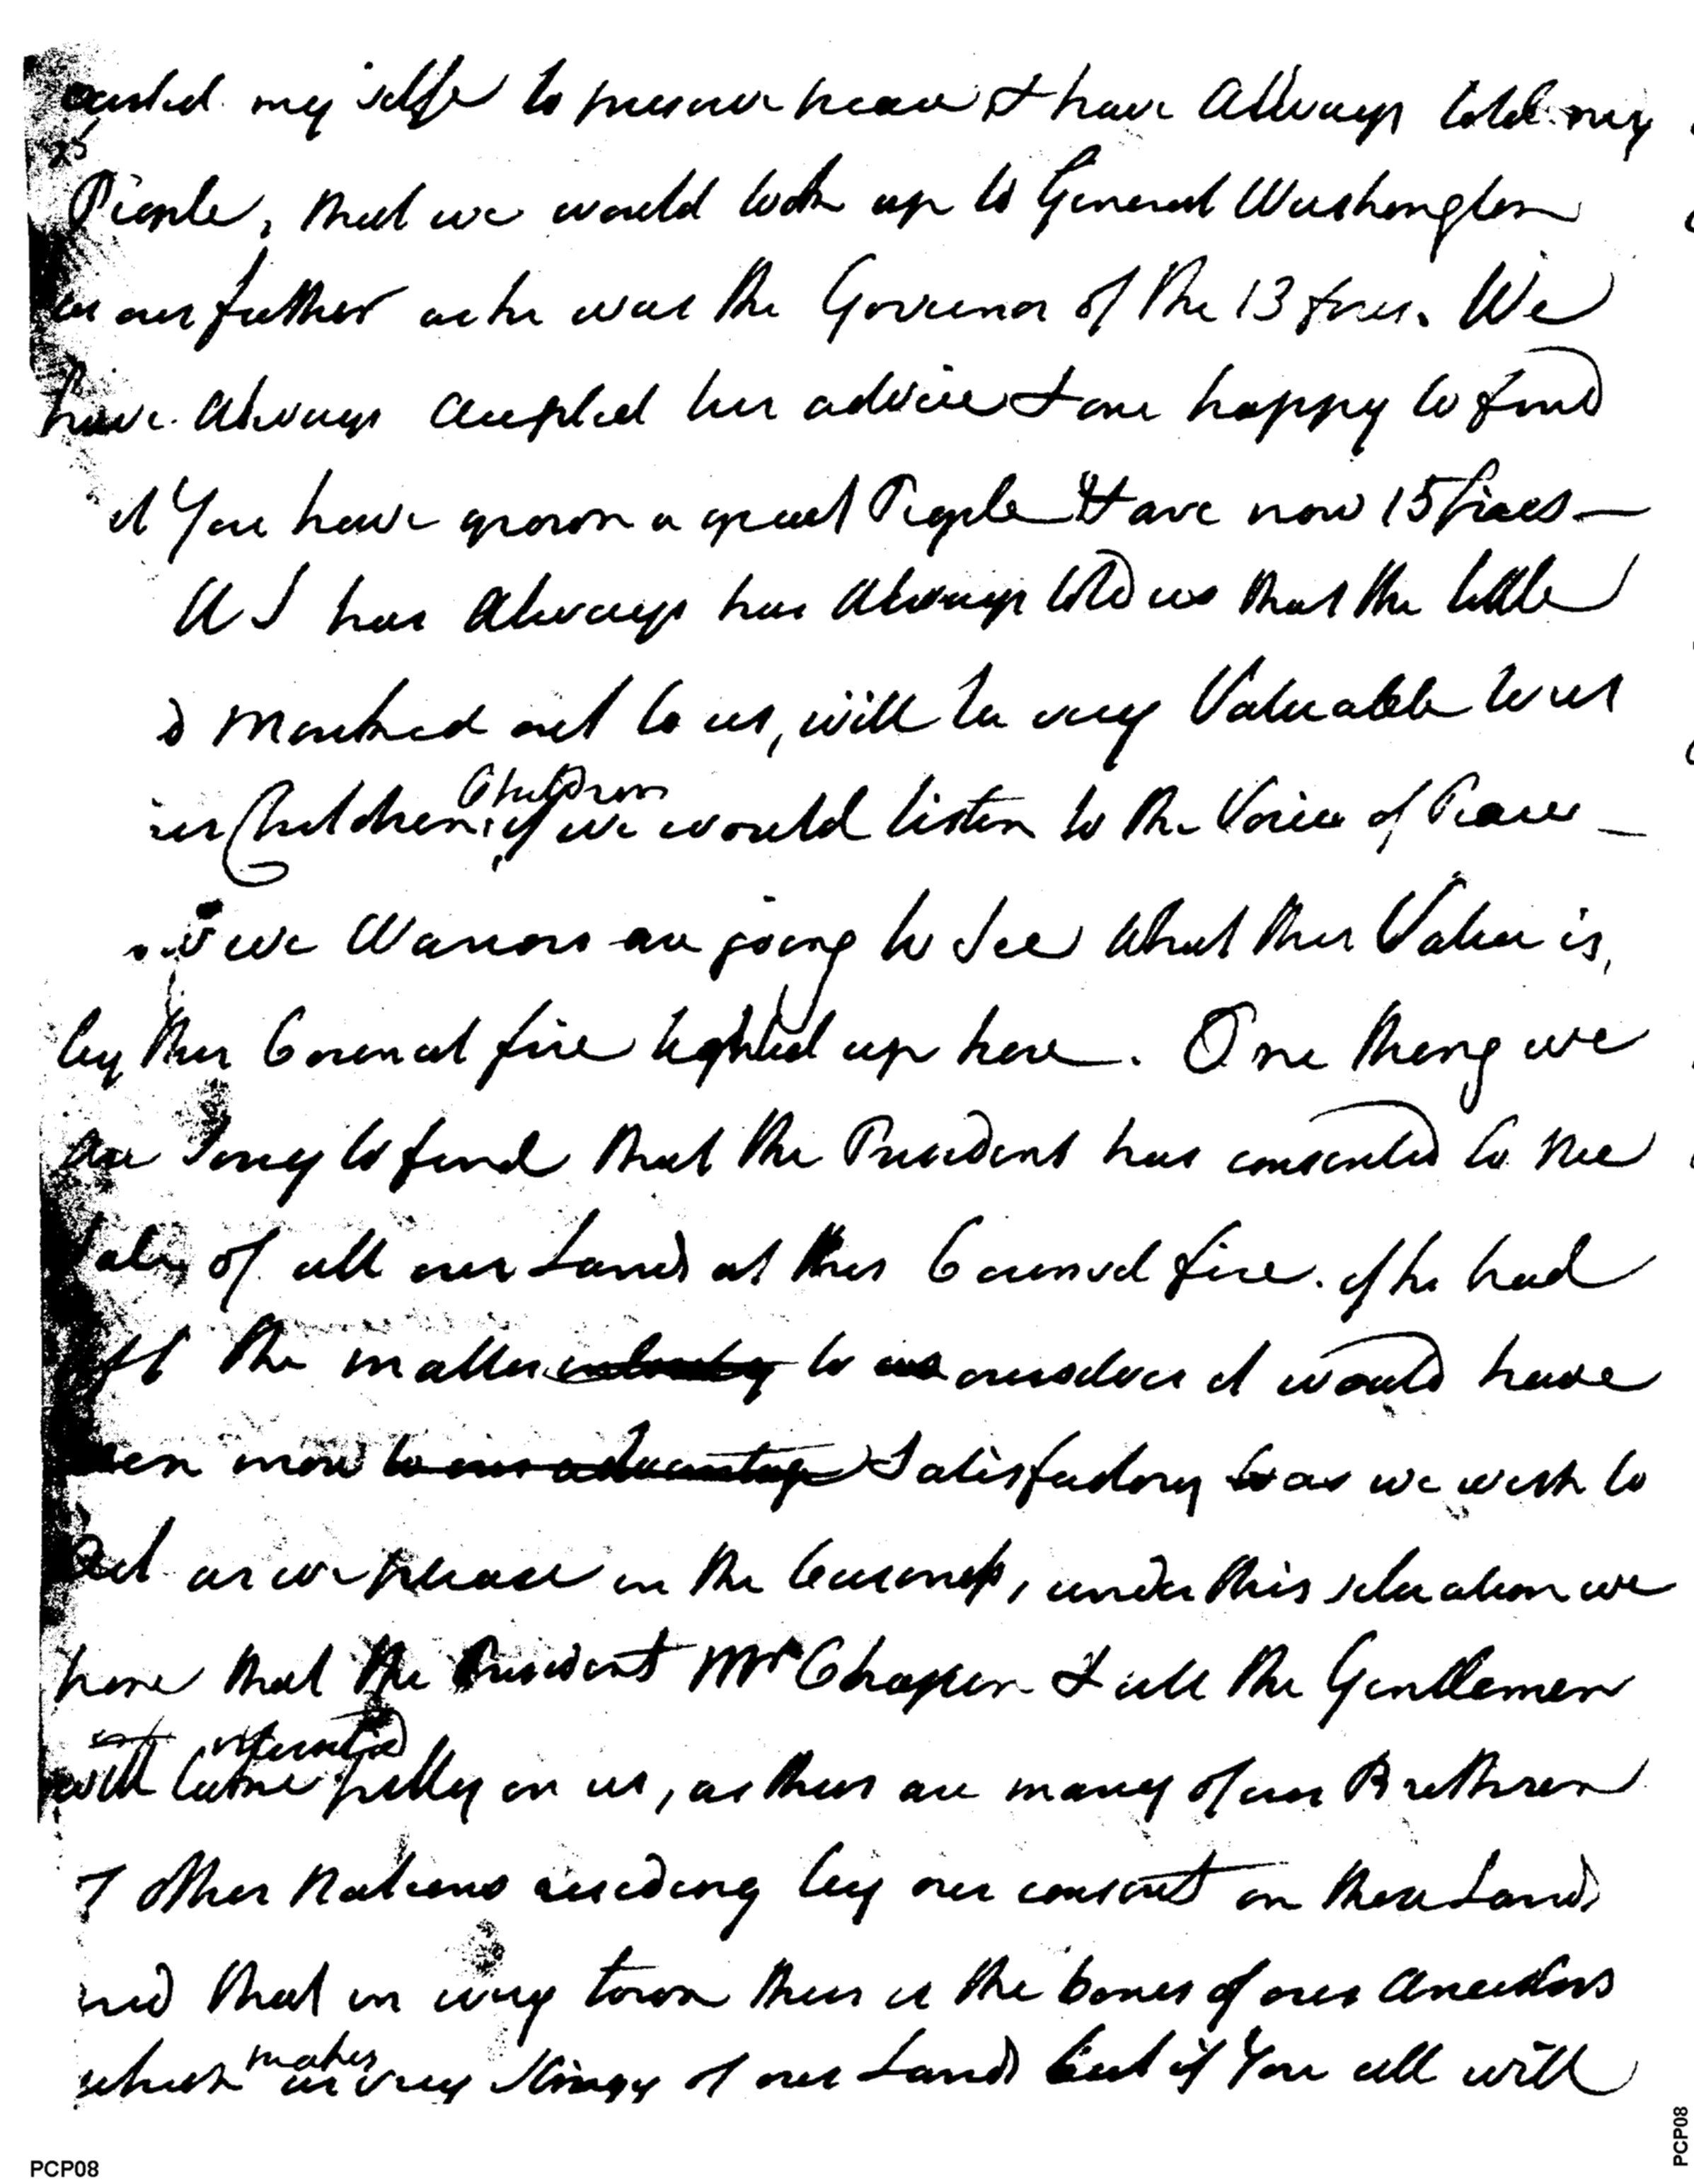 my selfe to preserve peace & have Allways told my
People, that we would look up to General Washington
as our father as he was the Governor of the 13 fires. We
have always accepted his advice & are happy to find
it You have grown a great People & have now 15 fires —
has Always has Always told us that the little
d marked out to us, will be very Valuable to us
our Children Children, if we would listen to the Voice of Peace —
we Wariors are going to See What this Value is,
by this Council fire lighted up here. One thing we
are Sorry to find that the President has consented to the
Sale of all our Lands at this Council fire. if he had
left the matter to us ourselves it would have
been more to our advantage Satisfactory as we wish to
Act as we please in the Council, under this situation we
hope that the President Mr Chapin & all the Gentlemen
will fully on us, as there are many of our Brethren
of other Nations residing by our consent on these Lands
and that in every town there is the bones of our Ancestors
which makes us very Stingy of our Lands but if You all will
PCP08
PCP08